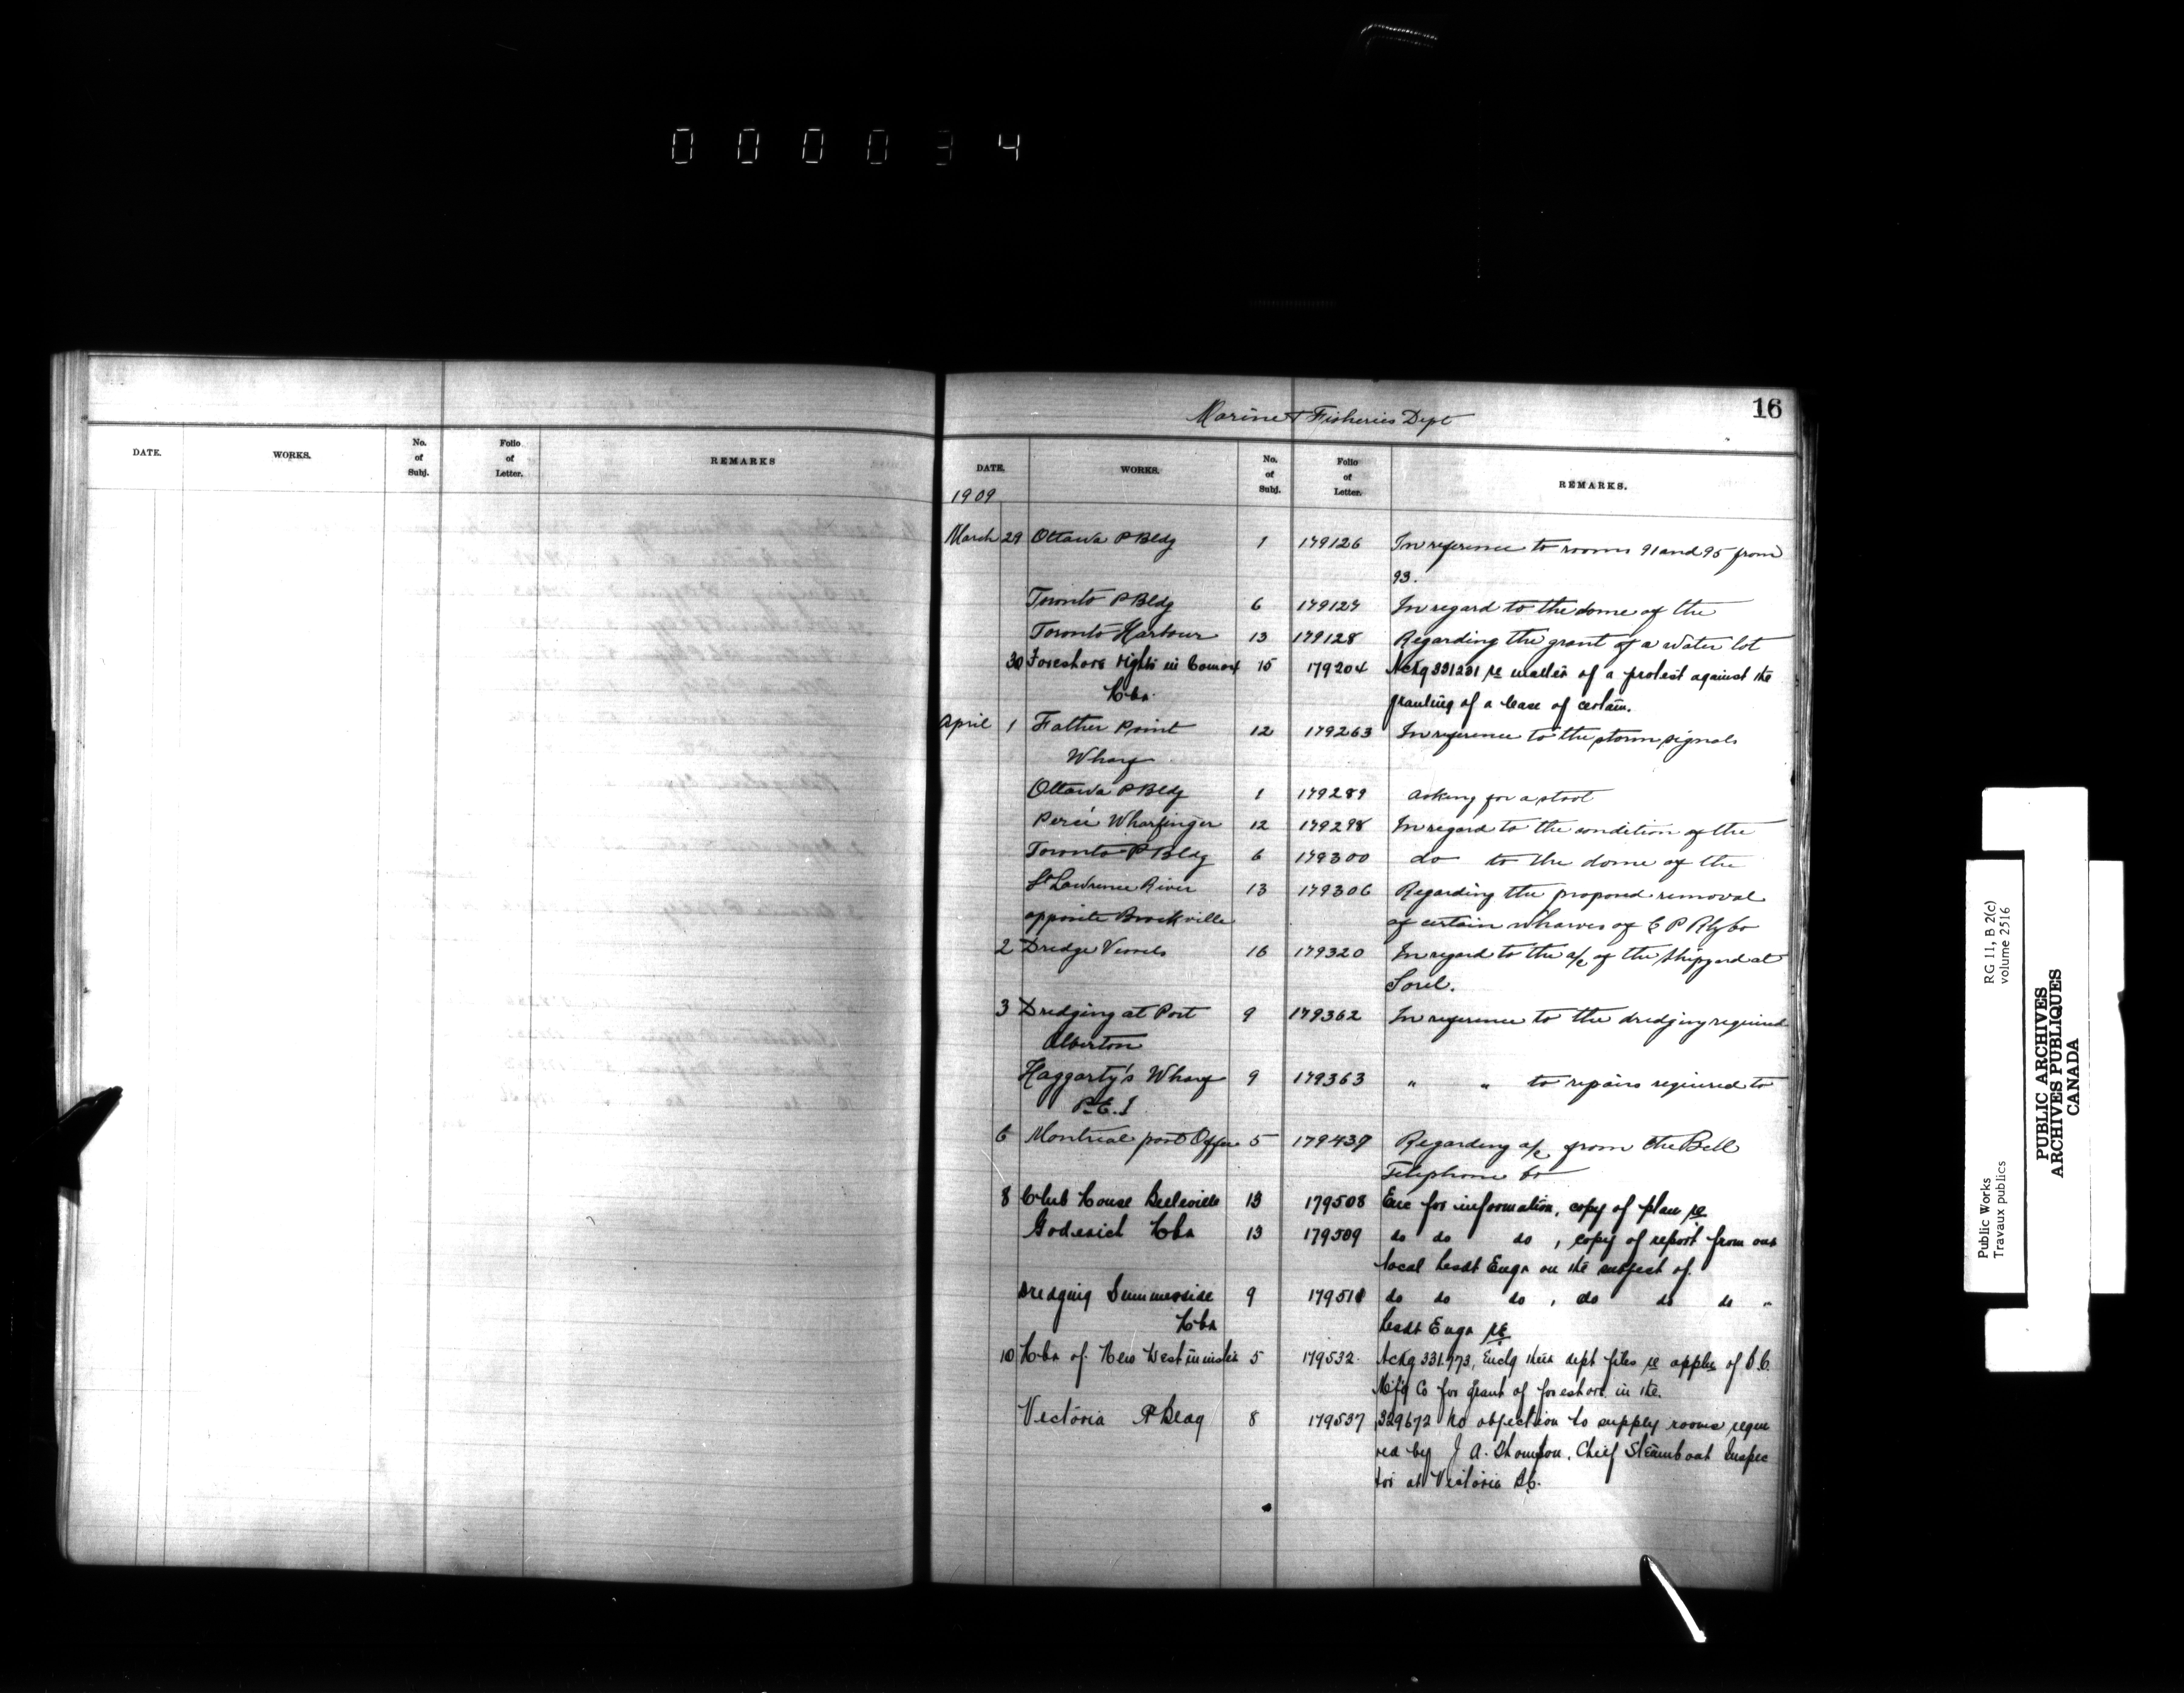 000034
16
Marine & Fisheries Dept
DATE. WORKS. No. of Subj. Folio of Letter. REMARKS
DATE. WORKS. No. of Subj. Folio of Letter. REMARKS.
1909
March 29 Ottawa P Bldg 1 179126 In reference to rooms 91 and 95 from
93.
Toronto P Bldg 6 179127 In regard to the dome of the
Toronto Harbour 13 179128 Regarding the grant of a water lot
30 Foreshore rights in Comox 15 179204 Ackg 331231 re matter of a protest against the
Hbr. granting of a lease of certain.
April 1 Father Point 12 179263 In reference to the storm signals
Wharf
Ottawa P Bldg 1 179289 asking for a stool
Percé Wharfinger 12 179298 In regard to the condition of the
Toronto P Bldg 6 179300 do to the dome of the
St Lawrence River 13 179306 Regarding the proposed removal
opposite Brockville of certain wharves of C P Rly Co
2 Dredge Vessels 16 179320 In regard to the a/c of the Shipyard at
Sorel.
3 Dredging at Port 9 179362 In reference to the dredging required
Alberton
Haggarty's Wharf 9 179363 " " to repairs required to
P.E.I.
6 Montreal post Office 5 179439 Regarding a/c from the Bell
Telephone Co
8 Club House Belleville 13 179508 Enc for information, copy of plan re
Goderich Hbr 13 179509 do do do, copy of report from our
local Resdt Engr on the subject of.
Dredging Summerside 9 179511 do do do, do do do "
Hbr Resdt Engr re
10 Hbr of New Westminster 5 179532 Ackg 331973, Enclg their dept files re appln of B.C.
Mfg Co for grant of foreshore in the.
Victoria P Bldg 8 179537 329672 No objection to supply rooms requi
red by J A. Thompson, Chief Steamboat Inspec
tor at Victoria B.C.
Public Works
Travaux publics
RG 11, B 2(c)
volume 2516
PUBLIC ARCHIVES
ARCHIVES PUBLIQUES
CANADA